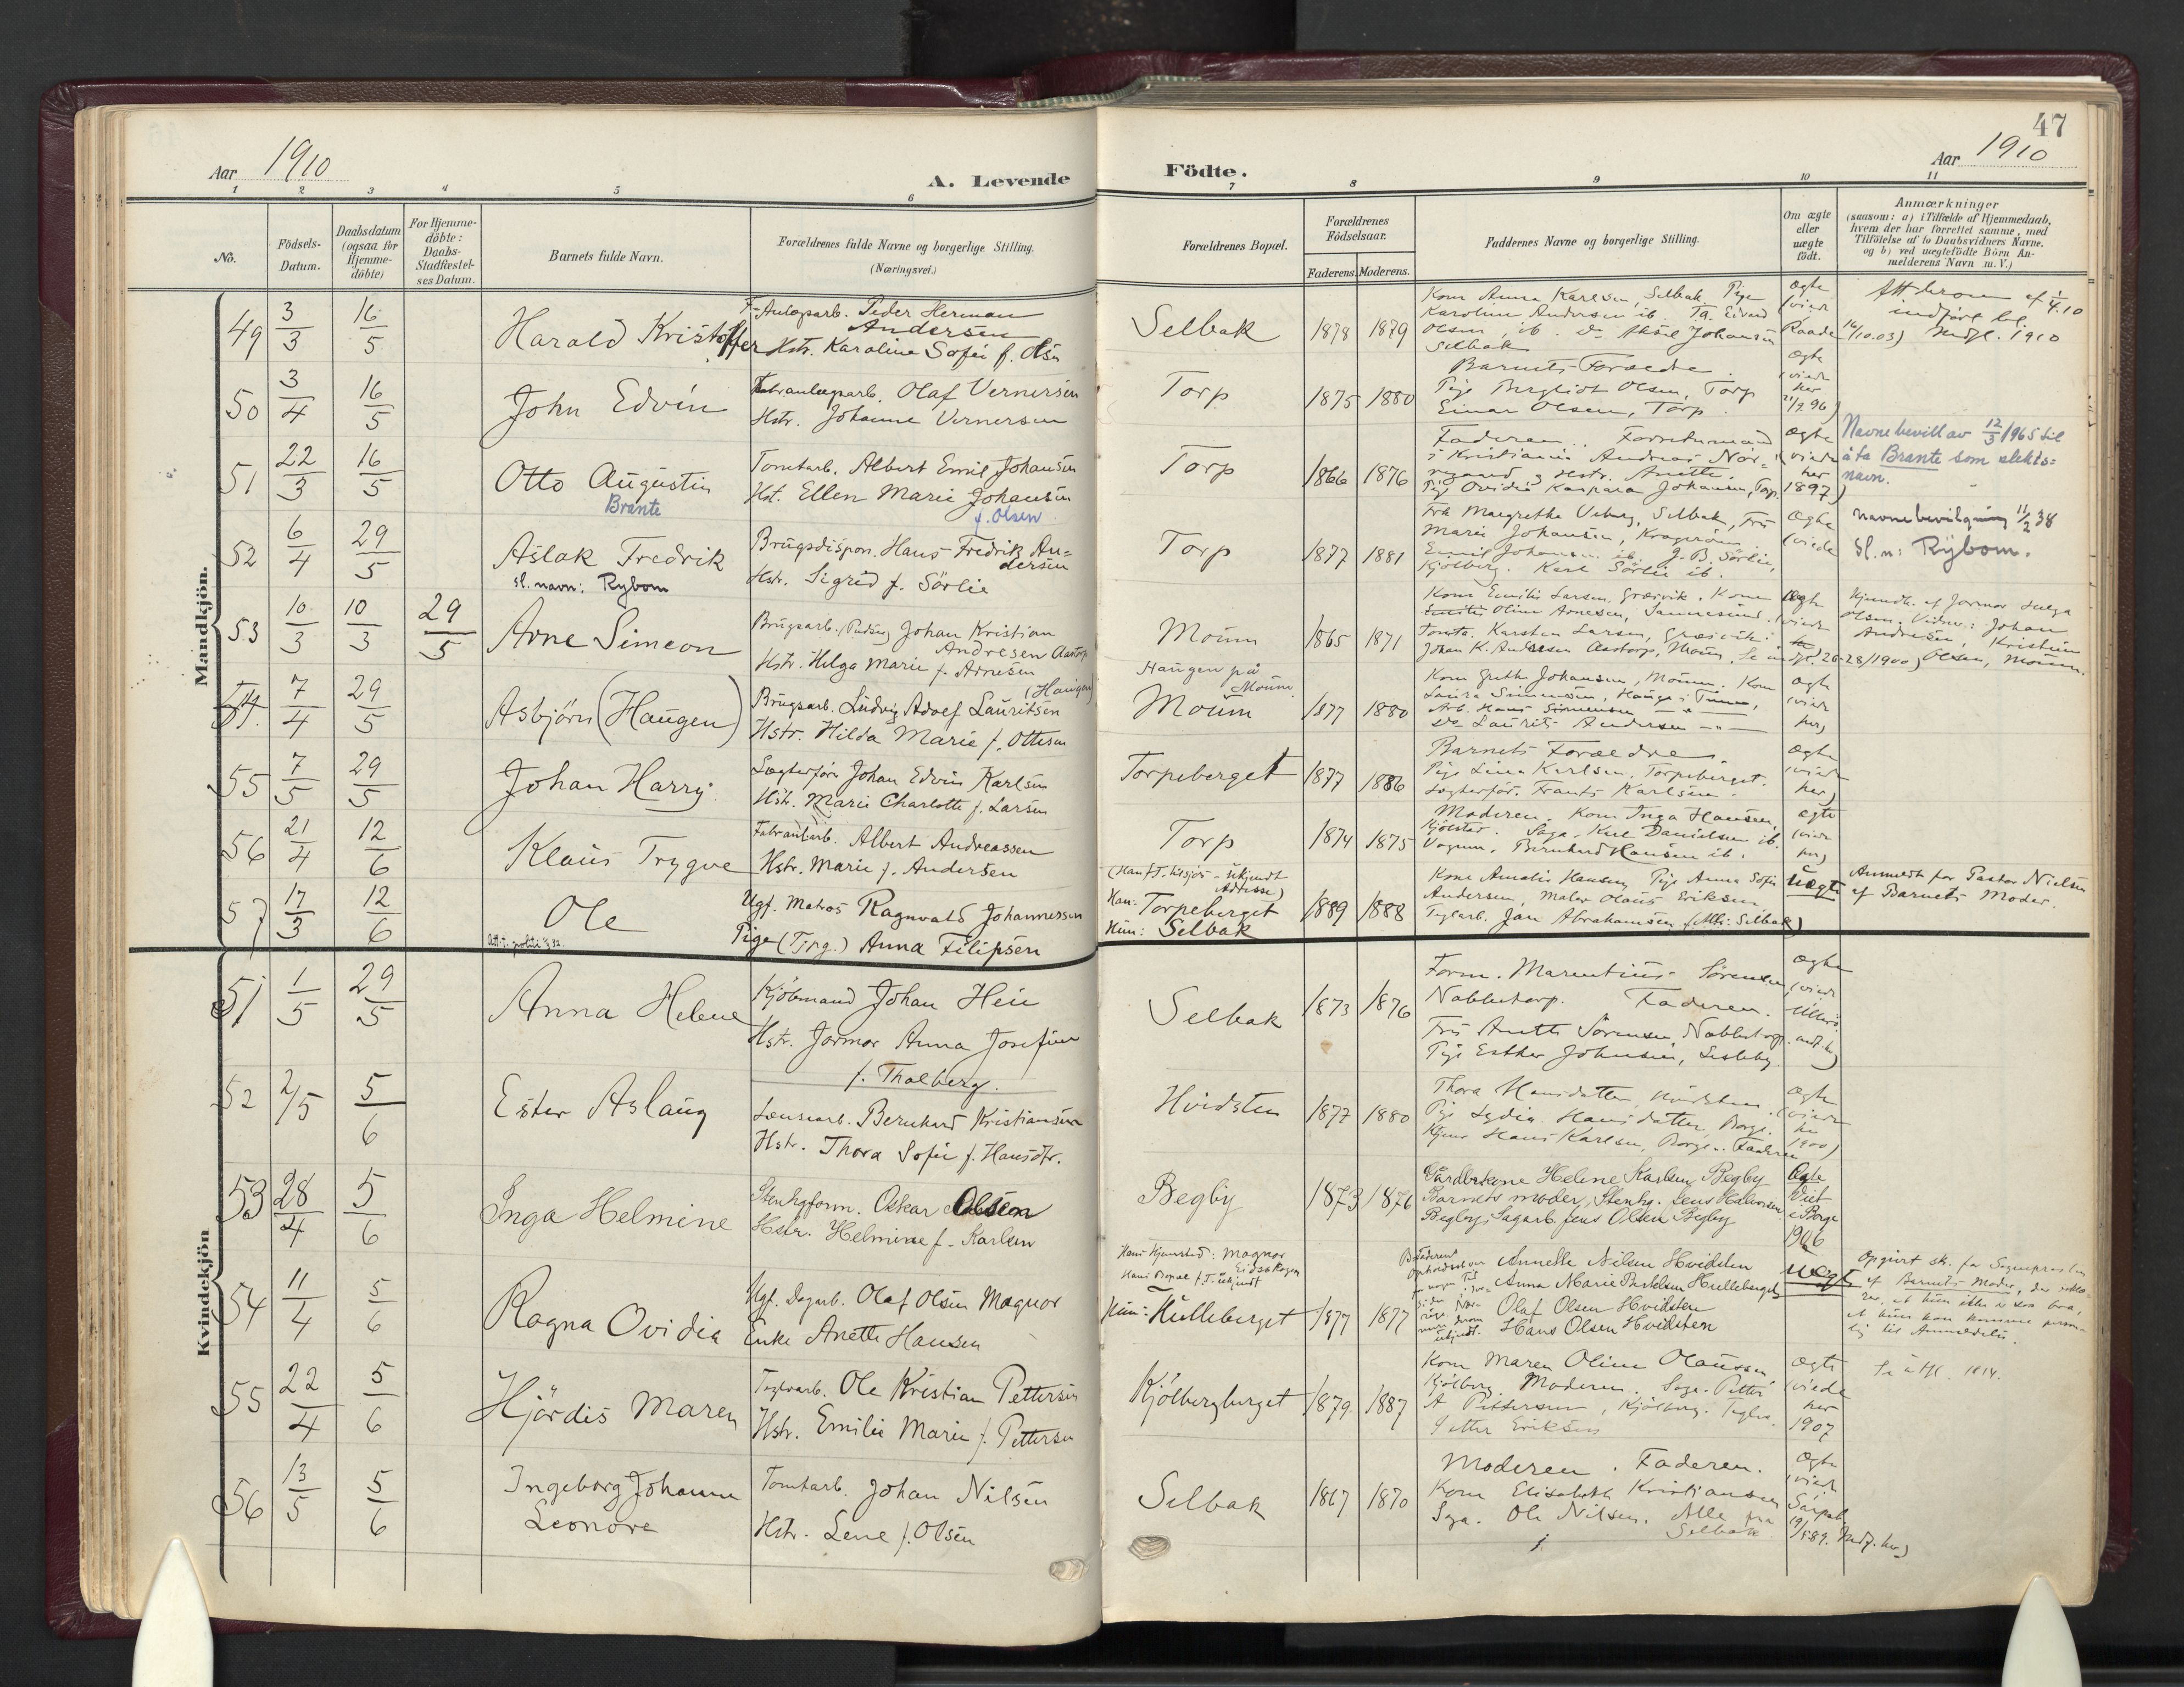 47
Aar 1910
A. Levende
Födte.
Aar 1910
1 2 3 4 5 6 7 8 9 10 11
No.
Födsels-
Datum.
Daabsdatum
(ogsaa for
Hjemme-
döbte)
For Hjemme-
döbte:
Daabs-
Stadfæstel-
ses Datum.
Barnets fulde Navn.
Forældrenes fulde Navne og borgerlige Stilling.
(Næringsvei.)
Forældrenes Bopæl.
Forældrenes
Födselsaar.
Faderens. Moderens.
Faddernes Navne og borgerlige Stilling.
Om ægte
eller
uægte
födt.
Anmærkninger
(saasom: a) i Tilfælde af Hjemmedaab,
hvem der har forrettet samme, med
Tilföielse af to Daabsvidners Navne.
og b) ved uægtefödte Börn An-
melderens Navn m. V.)
Mandkjön.
49 3/3 16/5 Harald Kristoffer
Peder Herman
Andersen
Hstr. Karoline Sofie f. Olsen
Selbak 1878 1879
Kone Anna Karlsen, Selbak. Pige
Karoline Andersen ib.
Olsen, ib. Do Aksel Johansen
Selbak
Ægte
(viede
Raade
16/10.03)
indfört
1910
50 3/4 16/5 John Edvin
Olaf Vernersen
Hstr. Johanne Vernersen
Torp 1875 1880
Barnets Forældre.
Pige Bergliot Olsen, Torp
Einar Olsen, Torp.
ægte
(viede
her
51 22/3 16/5 Otto Augustin
Brante
Tomtarb. Albert Emil Johansen
Hst. Ellen Marie Johansen
f. Olsen
Torp 1866 1876
Faderen.
i Kristiania Andreas Nor-
Hstr. Anette.
Pige Ovidia Kaspara Johansen, Torp.
ægte
(viede
her
1897)
Navnebevill av 12/3 1965 til
å ta Brante som slekts-
navn.
52 6/4 29/5 Aslak Fredrik
sl. navn: Rybom
Brugsdispon. Hans Fredrik An-
dersen
Hstr. Sigrid f. Sörlie
Torp 1877 1881
Selbak, Fru
Marie Johansen,
Emil Johansen ib. J. B. Sörlie,
Kjölberg. Karl Sörlie ib.
Ægte
(viede
Navnebevilgning 11/2 38
Sl.n: Rybom.
53 10/3 10/3 29/5 Arne Simeon
Brugsarb. Johan Kristian
Andresen
Hstr. Helga Marie f. Arnesen
Moum 1865 1871
Kone Emilie Larsen, Græsvik. Kone
Oline Arnesen,
Karsten Larsen, Græsvik:
Johan K. Andresen Aastorp, Moum.
Ægte
(viede
Hjemmedb. af Jormor Helga
Olsen. Vidner: Johan
Andresen, Kristine
Olsen, Moum.
54. 7/4 29/5 Asbjörn (Haugen)
(Haugen)
Brugsarb. Ludvig Adolf Lauritsen
Hstr. Hilda Marie f. Ottesen
Haugen på
Moum
Moum 1877 1880
Kone Grethe Johansen, Moum. Kone
Laura Simensen,
Arb. Hans Simensen
Do Laurits Andersen
ægte
(viede
her)
55 7/5 29/5 Johan Harry
Lægterför. Johan Edvin Karlsen
Hstr. Marie Charlotte f. Larsen
Torpeberget 1877 1886
Barnets Forældre
Pige Lina Karlsen, Torpeberget.
Lægterför. Frants Karlsen.
ægte
(viede
her)
56 21/4 12/6 Klaus Trygve
Albert Andreassen
Hstr. Marie f. Andersen
Torp 1874 1875
Moderen. Kone Inga Hansen,
Danielsen ib.
Bernhard Hansen ib.
ægte
(viede
her)
57 17/3 12/6 Ole
Ugf. Matros Ragnvald Johannessen
Pige Anna Filipsen
(Han f.T. tilsjös - ukjendt
Adresse)
Han: Torpeberget
Hun: Selbak
1889 1888
Kone Amalie Hansen, Pige Anna Sofie
Andersen, Maler Olaus Eriksen
Teglarb. Jan Abrahamsen. (Alle: Selbak)
Uægte
Anmeldt for Pastor Nielsen
af Barnets Moder.
Kvindekjön
51 1/5 29/5 Anna Helene
Kjöbmand Johan Heie
Hstr. Jormor Anna Josefine
f. Thalberg.
Selbak 1873 1876
Form. Marentius Sörensen,
Nabbetorp. Faderen.
Fru Anette Sörensen, Nabbetorp.
Pige Esther Johnsen, Lisleby.
ægte
(viede
52 2/5 5/6 Ester Aslaug
Lænsearb. Bernhard Kristiansen
Hstr. Thora Sofie f. Hansdtr.
Hvidsten 1877 1880
Thora Hansdatter, Hvidsten.
Pige Lydia Hansdatter, Borge.
Hans Karlsen, Borge. Faderen
ægte
(viede
her
1900)
53 28/4 5/6 Inga Helmine
Stenhgform. Oskar Olsen
Hstr. Helmine f. Karlsen
Begby 1873 1876
Gårdbrkone Helene Karlsen, Begby
Barnets moder, Stenhg. Jens Halvorsen
Begby, Sagarb. Jens Olsen Begby
Ægte
Viet
i Borge
1906
54 11/4 5/6 Ragna Ovidia
Ugf. Dagarb. Olaf Olsen Magnor
Enke Anette Hansen
Hans Hjemsted: Magnor
Eidskogen
Hans Bopæl f.T. ukjendt
Hun: Hulleberget 1877 1877
Annette Nilsen Hvidsten
Anna Marie Hulleberget
Olaf Olsen Hvidsten
Hans Olsen Hvidsten
Uægte
Opgivet sk. for Sognepresten
af Barnets Moder,
55 22/4 5/6 Hjördis Maren
Teglarb. Ole Kristian Pettersen
Hstr. Emilie Marie f. Pettersen
Kjölbergberget 1879 1887
Kone Maren Oline Olaussen
Kjölberg. Moderen. Petter
A Pettersen, Kjölberg.
Petter Eriksen
ægte
(viede
her
1907
56 13/5 5/6 Ingeborg Johanne
Leonore
Tomtarb. Johan Nilsen
Hstr. Lene f. Olsen
Selbak 1867 1870
Moderen. Faderen.
Kone Elisabeth Kristiansen
Ole Nilsen. Alle fra
Selbak
ægte
(viede
i
Indf. her)